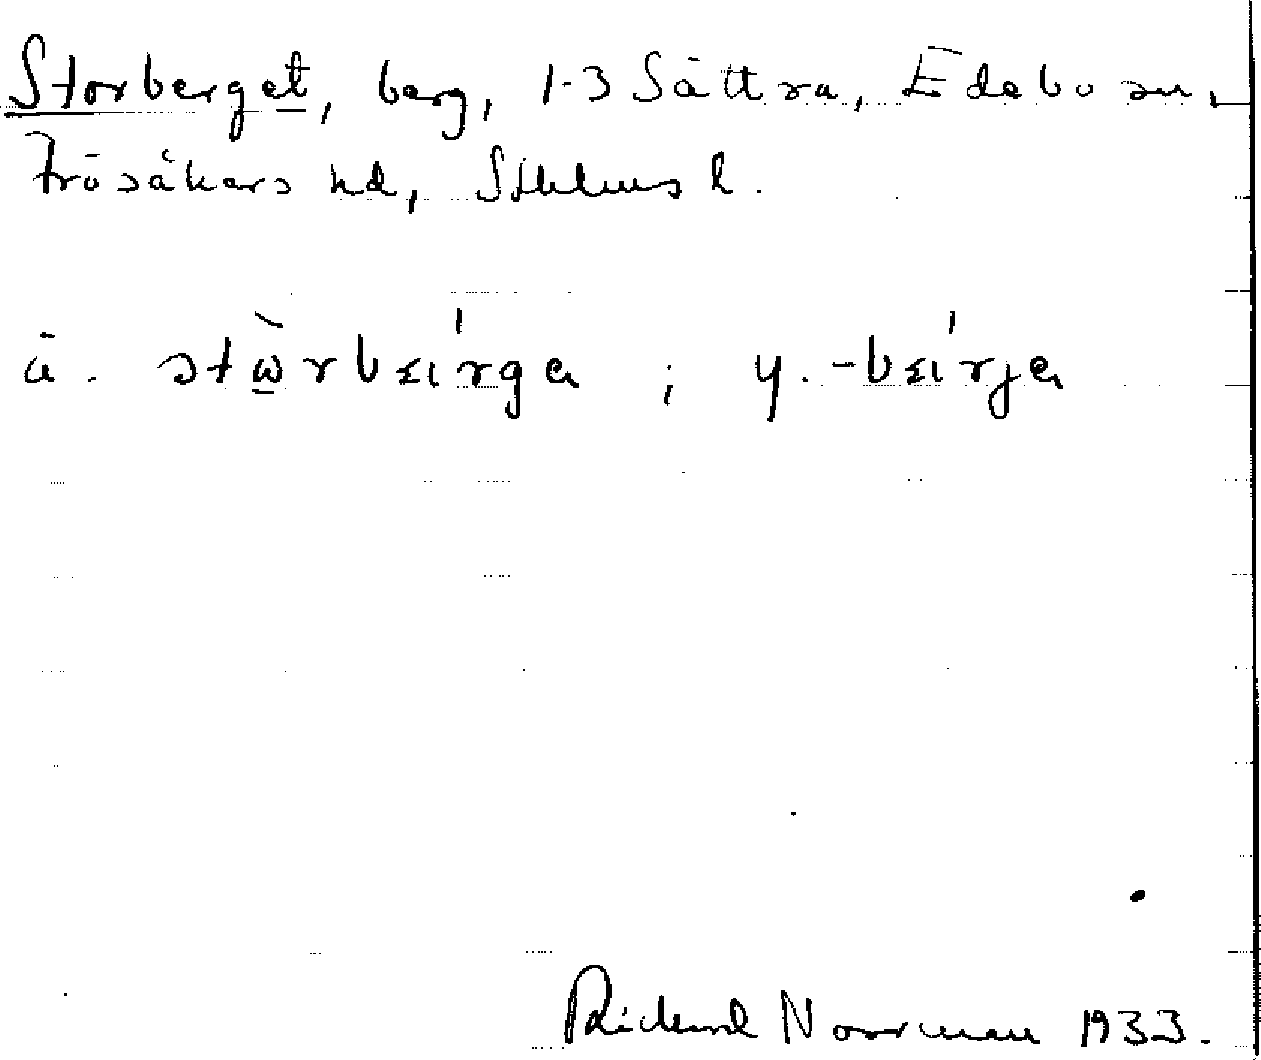 Storberget, berg, 1-3 Sättra, Edebo sn,
Frösåkers hd, Sthlms l.
ä. stὼrbεırga ; y. -bεırja
Rickard Norrman 1933.